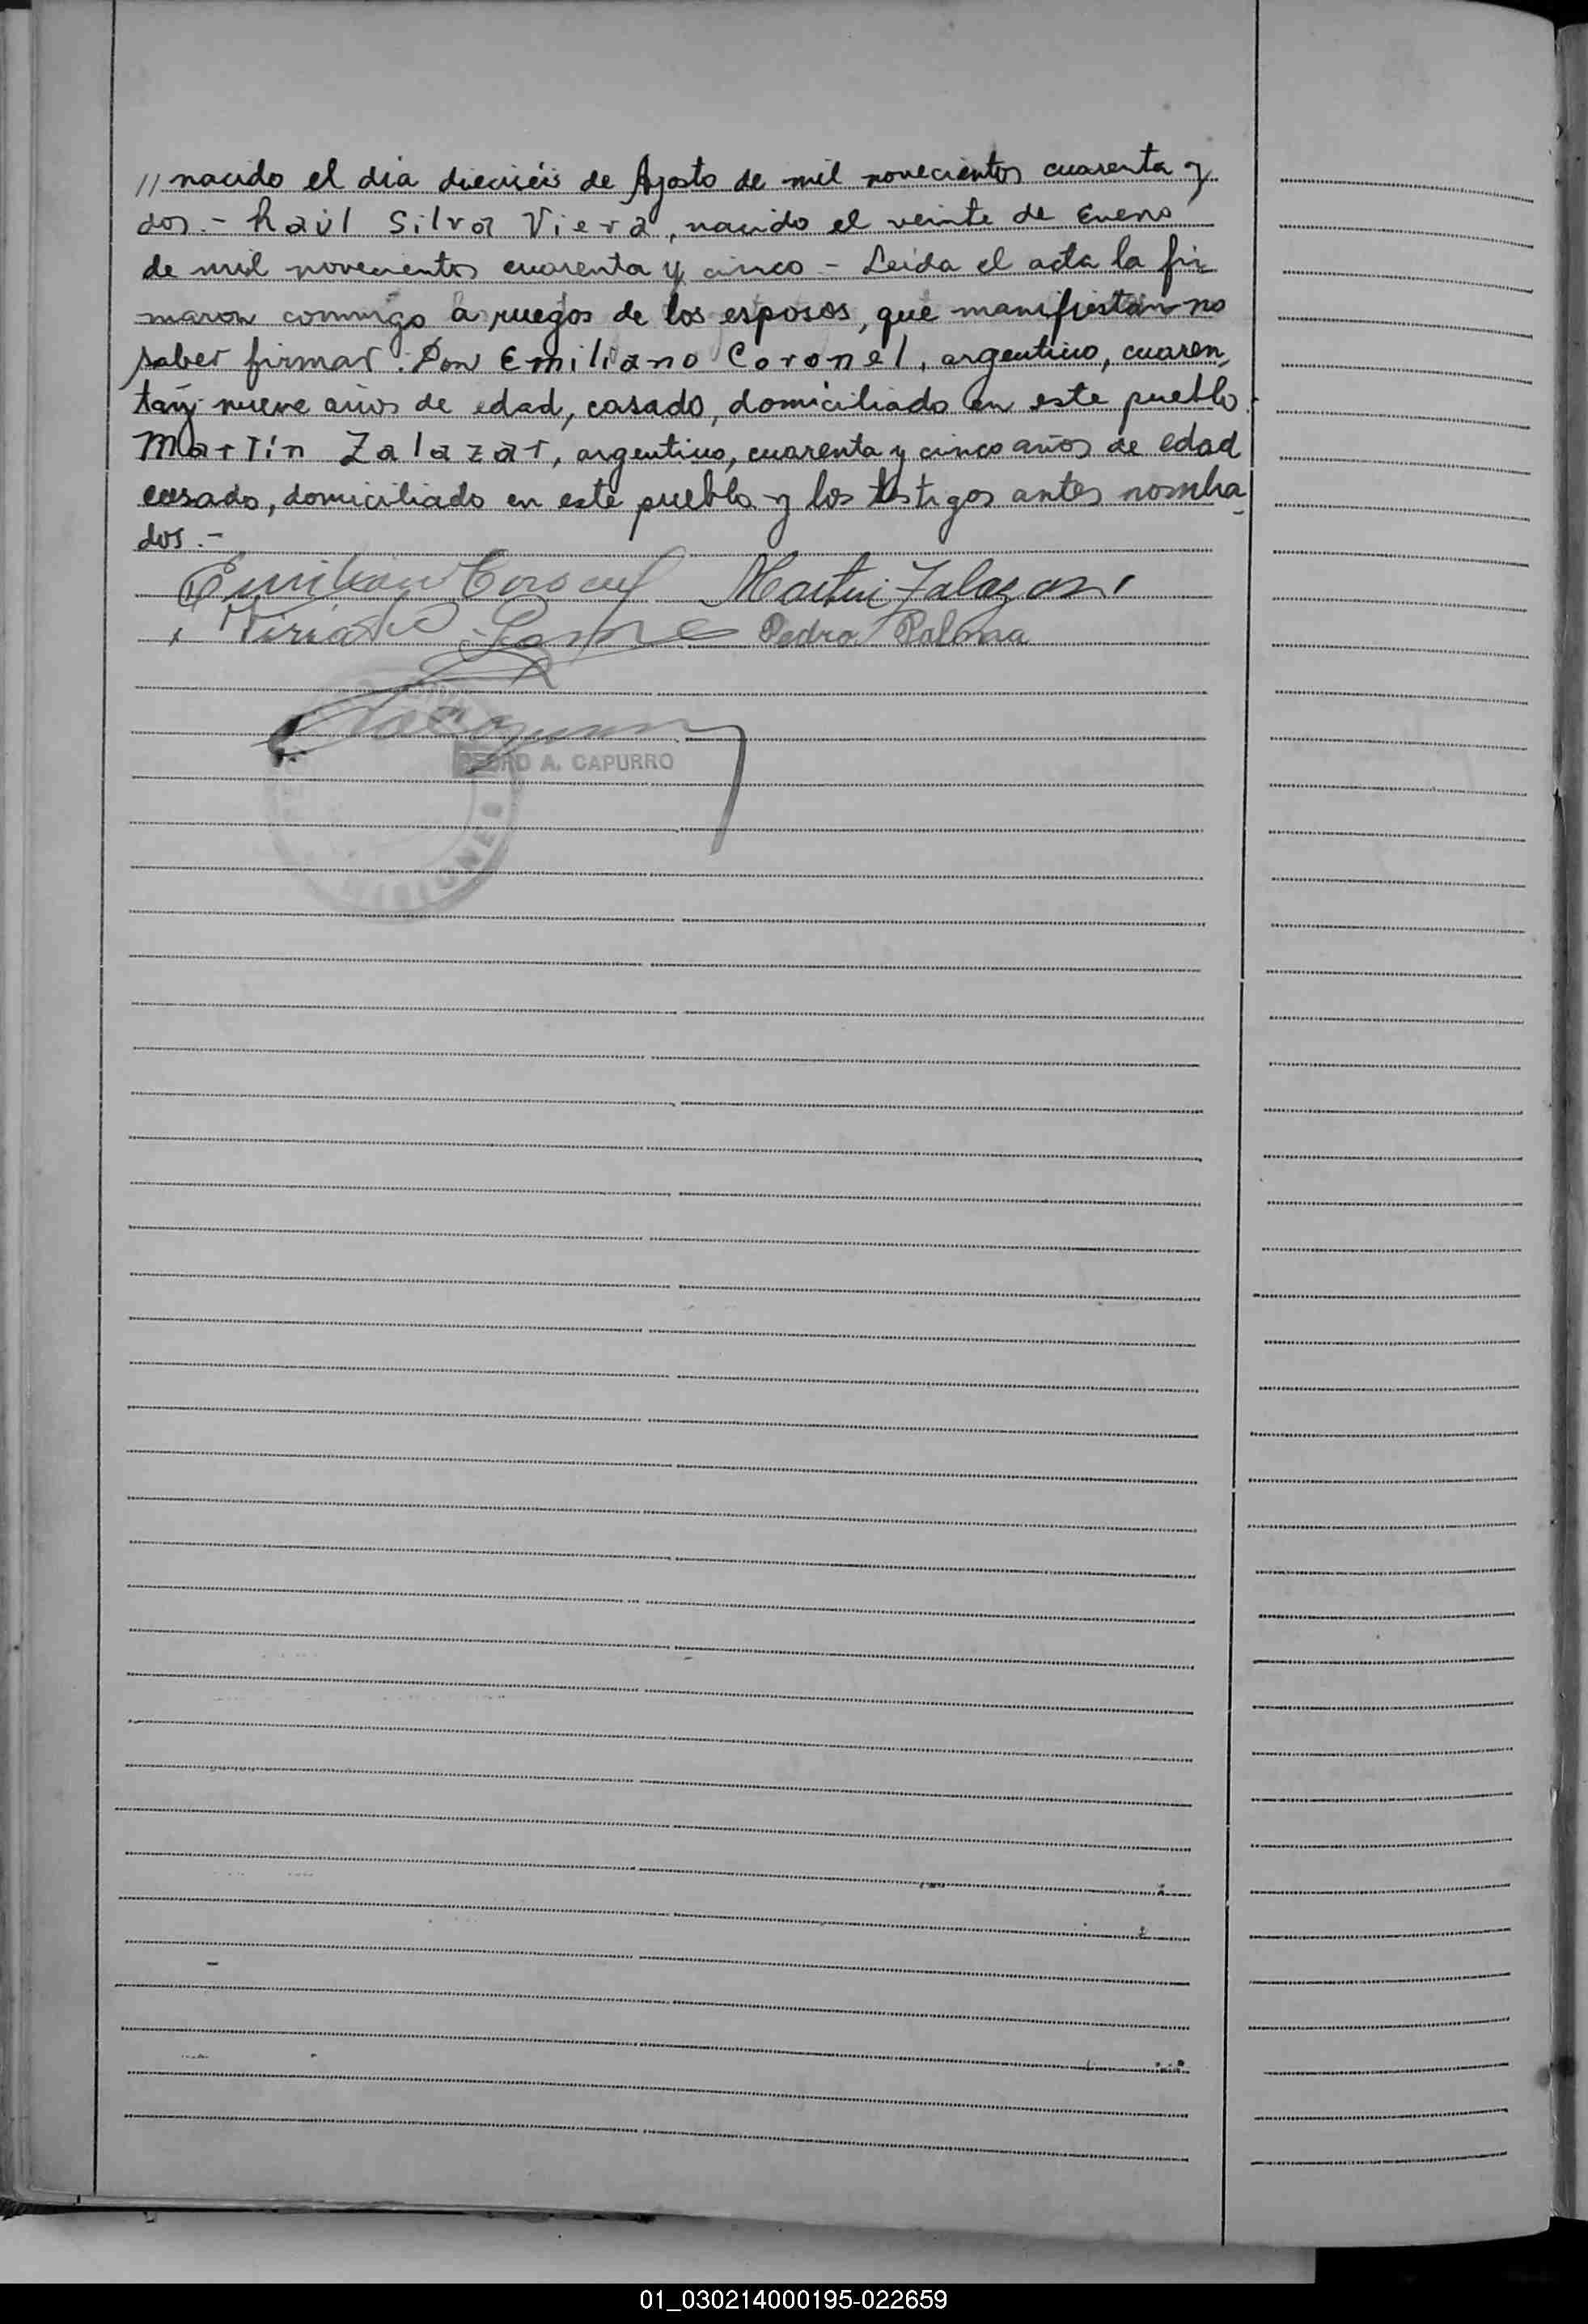 // nacido el día dieciséis de Agosto de mil novecientos cuarenta y
dos.- Raúl Silva Viera, nacido el veinte de Enero
de mil novecientos cuarenta y cinco - Leída el acta la fir
maron conmigo a ruegos de los esposos, que manifiestan no
saber firmar. Don Emiliano Coronel, argentino, cuaren-
tay nueve años de edad, casado, domiciliado en este pueblo.
Martín Zalazar, argentino, cuarenta y cinco años de edad
casado, domiciliado en este pueblo y los testigos antes nombra-
dos.-
Emiliano Coronel Martin Zalazar
Pedro Palma
PEDRO A. CAPURRO
MISIONES
01_030214000195-022659